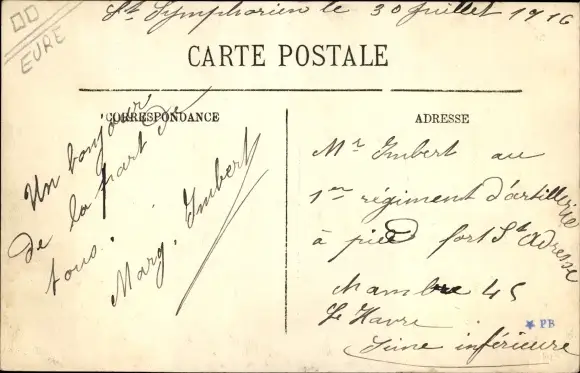 DD
EURE
St Symphorien le 30 Juillet 1916
CARTE POSTALE
CORRESPONDANCE
Un bonjour
de la part de
tous.
Marg. Imbert
ADRESSE
Mr Imbert au
1er régiment d'artillerie
à pied fort St Adresse
Chambre 45
Le Havre
Seine inférieure
PB